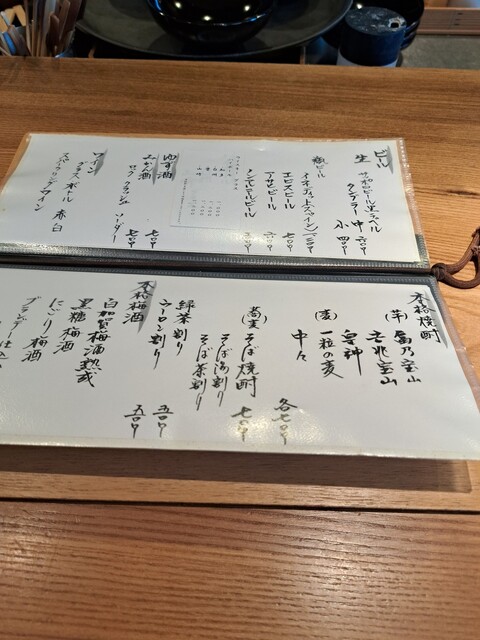 ビール
生 サッポロ生ビール黒ラベル
タンブラー 中 六〇〇
小 四〇〇
瓶ビール
エビスビール 七〇〇
アサヒビール 六〇〇
ノンアルコールビール
ゆず酒
みかん酒 七〇〇
ロック クラッシュ ソーダー 七〇〇
ワイン
グラス ボトル 赤 白
スパークリングワイン
本格焼酎
(芋) 富乃宝山
吉兆宝山
(麦) 一粒の麦
中々
各七〇〇
(蕎麦) そば焼酎 七〇〇
そば湯割り
そば茶割り
緑茶割り 五〇〇
ウーロン割り 五〇〇
本格梅酒
白加賀梅酒熟成
黒糖梅酒
にごり梅酒
ブランデー仕込